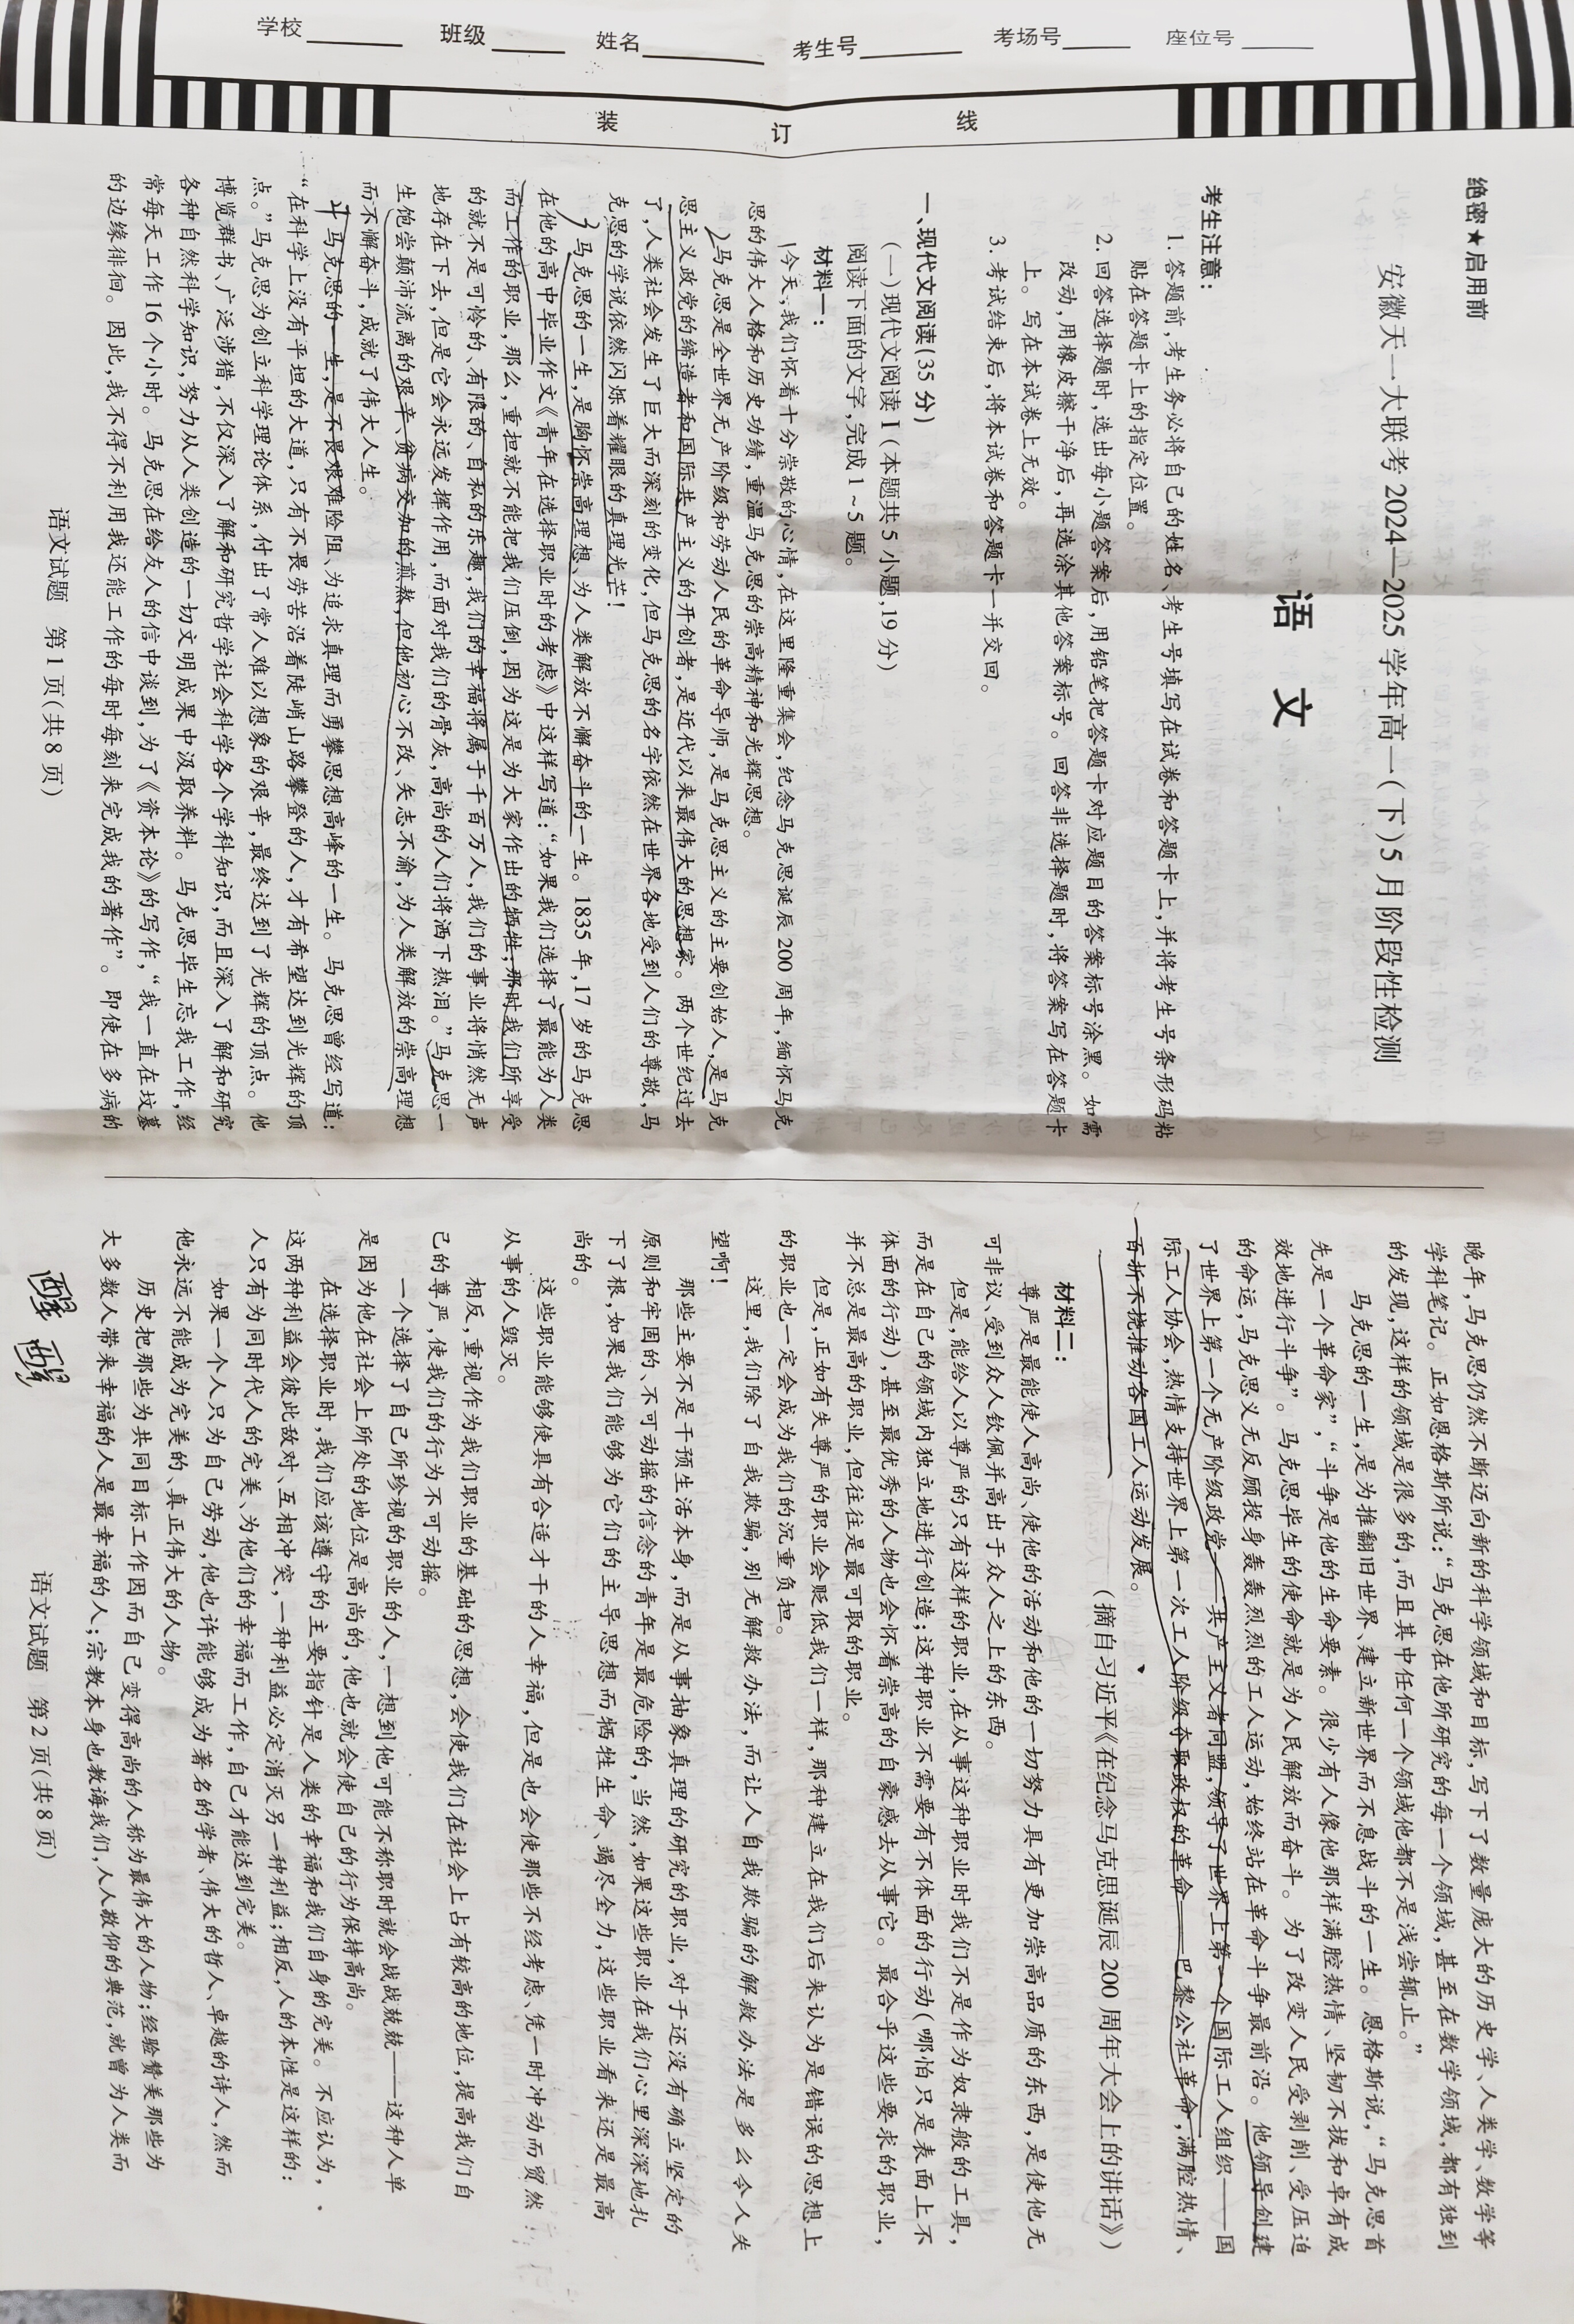 学校 班级 姓名 考生号 考场号 座位号
装 订 线
绝密★启用前
安徽天一大联考2024—2025学年高一(下)5月阶段性检测
语 文
考生注意:
1.答题前,考生务必将自己的姓名、考生号填写在试卷和答题卡上,并将考生号条形码粘
贴在答题卡上的指定位置。
2.回答选择题时,选出每小题答案后,用铅笔把答题卡对应题目的答案标号涂黑。如需
改动,用橡皮擦干净后,再选涂其他答案标号。回答非选择题时,将答案写在答题卡
上。写在本试卷上无效。
3.考试结束后,将本试卷和答题卡一并交回。
一、现代文阅读(35分)
(一)现代文阅读Ⅰ(本题共5小题,19分)
阅读下面的文字,完成1~5题。
材料一:
今天,我们怀着十分崇敬的心情,在这里隆重集会,纪念马克思诞辰200周年,缅怀马克
思的伟大人格和历史功绩,重温马克思的崇高精神和光辉思想。
马克思是全世界无产阶级和劳动人民的革命导师,是马克思主义的主要创始人,是马克
思主义政党的缔造者和国际共产主义的开创者,是近代以来最伟大的思想家。两个世纪过去
了,人类社会发生了巨大而深刻的变化,但马克思的名字依然在世界各地受到人们的尊敬,马
克思的学说依然闪烁着耀眼的真理光芒!
马克思的一生,是胸怀崇高理想、为人类解放不懈奋斗的一生。1835年,17岁的马克思
在他的高中毕业作文《青年在选择职业时的考虑》中这样写道:“如果我们选择了最能为人类
而工作的职业,那么,重担就不能把我们压倒,因为这是为大家作出的牺牲;那时我们所享受
的就不是可怜的、有限的、自私的乐趣,我们的幸福将属于千百万人,我们的事业将悄然无声
地存在下去,但是它会永远发挥作用,而面对我们的骨灰,高尚的人们将洒下热泪。”马克思一
生饱尝颠沛流离的艰辛、贫病交加的煎熬,但他初心不改、矢志不渝,为人类解放的崇高理想
而不懈奋斗,成就了伟大人生。
马克思的一生,是不畏艰难险阻、为追求真理而勇攀思想高峰的一生。马克思曾经写道:
“在科学上没有平坦的大道,只有不畏劳苦沿着陡峭山路攀登的人,才有希望达到光辉的顶
点。”马克思为创立科学理论体系,付出了常人难以想象的艰辛,最终达到了光辉的顶点。他
博览群书、广泛涉猎,不仅深入了解和研究哲学社会科学各个学科知识,而且深入了解和研究
各种自然科学知识,努力从人类创造的一切文明成果中汲取养料。马克思毕生忘我工作,经
常每天工作16个小时。马克思在给友人的信中谈到,为了《资本论》的写作,“我一直在坟墓
的边缘徘徊。因此,我不得不利用我还能工作的每时每刻来完成我的著作”。即使在多病的
语文试题 第1页(共8页)
晚年,马克思仍然不断迈向新的科学领域和目标,写下了数量庞大的历史学、人类学、数学等
学科笔记。正如恩格斯所说:“马克思在他所研究的每一个领域,甚至在数学领域,都有独到
的发现,这样的领域是很多的,而且其中任何一个领域他都不是浅尝辄止。”
马克思的一生,是为推翻旧世界、建立新世界而不息战斗的一生。恩格斯说,“马克思首
先是一个革命家”,“斗争是他的生命要素。很少有人像他那样满腔热情、坚韧不拔和卓有成
效地进行斗争”。马克思毕生的使命就是为人民解放而奋斗。为了改变人民受剥削、受压迫
的命运,马克思义无反顾投身轰轰烈烈的工人运动,始终站在革命斗争最前沿。他领导创建
了世界上第一个无产阶级政党——共产主义者同盟,领导了世界上第一个国际工人组织——国
际工人协会,热情支持世界上第一次工人阶级夺取政权的革命——巴黎公社革命,满腔热情、
百折不挠推动各国工人运动发展。
(摘自习近平《在纪念马克思诞辰200周年大会上的讲话》)
材料二:
尊严是最能使人高尚、使他的活动和他的一切努力具有更加崇高品质的东西,是使他无
可非议、受到众人钦佩并高出于众人之上的东西。
但是,能给人以尊严的只有这样的职业,在从事这种职业时我们不是作为奴隶般的工具,
而是在自己的领域内独立地进行创造;这种职业不需要有不体面的行动(哪怕只是表面上不
体面的行动),甚至最优秀的人物也会怀着崇高的自豪感去从事它。最合乎这些要求的职业,
并不总是最高的职业,但往往是最可取的职业。
但是,正如有失尊严的职业会贬低我们一样,那种建立在我们后来认为是错误的思想上
的职业也一定会成为我们的沉重负担。
这里,我们除了自我欺骗,别无解救办法,而让人自我欺骗的解救办法是多么令人失
望啊!
那些主要不是干预生活本身,而是从事抽象真理的研究的职业,对于还没有确立坚定的
原则和牢固的、不可动摇的信念的青年是最危险的,当然,如果这些职业在我们心里深深地扎
下了根,如果我们能够为它们的主导思想而牺牲生命、竭尽全力,这些职业看来还是最高
尚的。
这些职业能够使具有合适才干的人幸福,但是也会使那些不经考虑、凭一时冲动而贸然
从事的人毁灭。
相反,重视作为我们职业的基础的思想,会使我们在社会上占有较高的地位,提高我们自
己的尊严,使我们的行为不可动摇。
一个选择了自己所珍视的职业的人,一想到他可能不称职时就会战战兢兢——这种人单
是因为他在社会上所处的地位是高尚的,他也就会使自己的行为保持高尚。
在选择职业时,我们应该遵守的主要指针是人类的幸福和我们自身的完美。不应认为,
这两种利益会彼此敌对、互相冲突,一种利益必定消灭另一种利益;相反,人的本性是这样的:
人只有为同时代人的完美、为他们的幸福而工作,自己才能达到完美。
如果一个人只为自己劳动,他也许能够成为著名的学者、伟大的哲人、卓越的诗人,然而
他永远不能成为完美的、真正伟大的人物。
历史把那些为共同目标工作因而自己变得高尚的人称为最伟大的人物;经验赞美那些为
大多数人带来幸福的人是最幸福的人;宗教本身也教诲我们,人人敬仰的典范,就曾为人类而
语文试题 第2页(共8页)